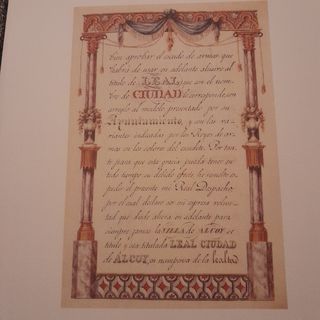 bien aprobar el escudo de armas que
habrá de usar en adelante alusivo al
título de LEAL que con el nom-
bre de CIUDAD le corresponde con
arreglo al modelo presentado por su
Ayuntamiento, y con las va-
riantes indicadas por los Reyes de ar-
mas en los colores del escudo. Por tan-
to para que esta gracia pueda tener en
todo tiempo su debido efecto he resuelto es-
pedir el presente mi Real Despacho
por el cual declaro ser mi espresa volun-
tad que desde ahora en adelante para
siempre jamas la VILLA de ALCOY se
titule y sea titulada LEAL CIUDAD
de ALCOY, en recompensa de la lealtad